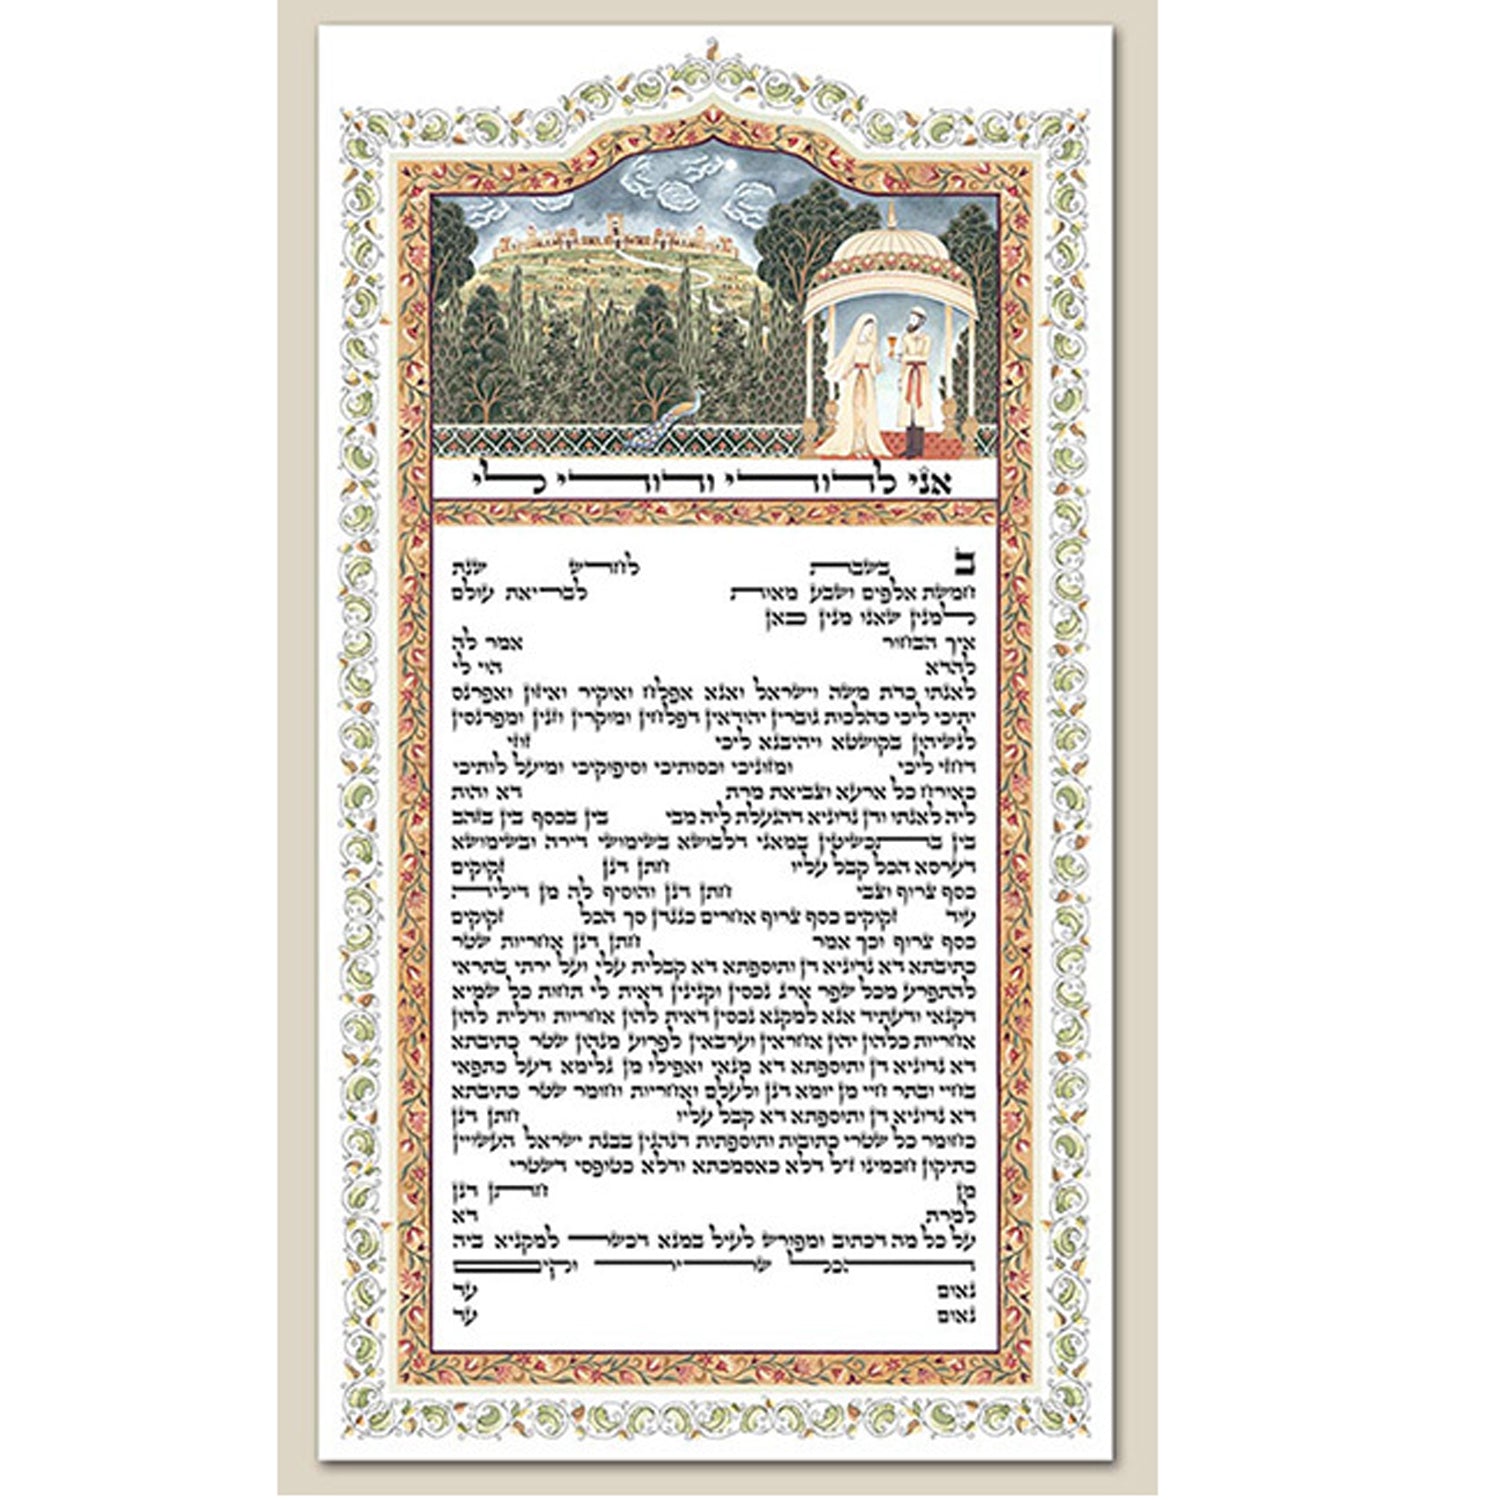 אני לדודי ודודי לי
ב בשבת לחדש שנת
חמשת אלפים ושבע מאות לבריאת עולם
למנין שאנו מנין כאן
איך הבחור אמר לה
להדא הוי לי
לאנתו כדת משה וישראל ואנא אפלח ואוקיר ואיזון ואפרנס
יתיכי ליכי כהלכות גוברין יהודאין דפלחין ומוקרין וזנין ומפרנסין
לנשיהון בקושטא ויהיבנא ליכי זוזי
דחזי ליכי ומזוניכי וכסותיכי וסיפוקיכי ומיעל לותיכי
כאורח כל ארעא וצביאת מרת דא והות
ליה לאנתו ודן נדוניא דהנעלת ליה מבי בין בכסף בין בזהב
בין בתכשיטין במאני דלבושא בשימושי דירה ובשימושא
דערסא הכל קבל עליו חתן דנן זקוקים
כסף צרוף וצבי חתן דנן והוסיף לה מן דיליה
עוד זקוקים כסף צרוף אחרים כנגדן סך הכל זקוקים
כסף צרוף וכך אמר חתן דנן אחריות שטר
כתובתא דא נדוניא דן ותוספתא דא קבלית עלי ועל ירתי בתראי
להתפרע מכל שפר ארג נכסין וקנינין דאית לי תחות כל שמיא
דקנאי ודעתיד אנא למקנא נכסין דאית להון אחריות ודלית להון
אחריות כלהון יהון אחראין וערבאין לפרוע מנהון שטר כתובתא
דא נדוניא דן ותוספתא דא מנאי ואפילו מן גלימא דעל כתפאי
בחיי ובתר חיי מן יומא דנן ולעלם ואחריות וחומר שטר כתובתא
דא נדוניא דן ותוספתא דא קבל עליו חתן דנן
כחומר כל שטרי כתובות ותוספתות דנהגין בבנת ישראל העשויין
כתיקון חכמינו ז״ל דלא כאסמכתא ודלא כטופסי דשטרי
מן חתן דנן
למרת דא
על כל מה דכתוב ומפורש לעיל במנא דכשר למקניא ביה
והכל שריר וקים
נאום עד
נאום עד